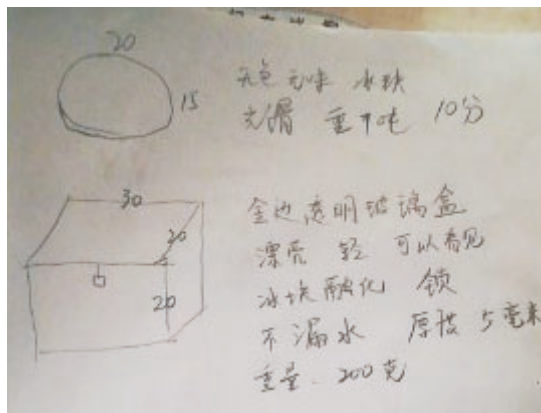 20
15
无色无味 冰块
光滑 重千吨 10分
30
20
20
金边透明玻璃盒
漂亮 轻 可以看见
冰块融化 锁
不漏水 厚 5毫米
重量. 200克